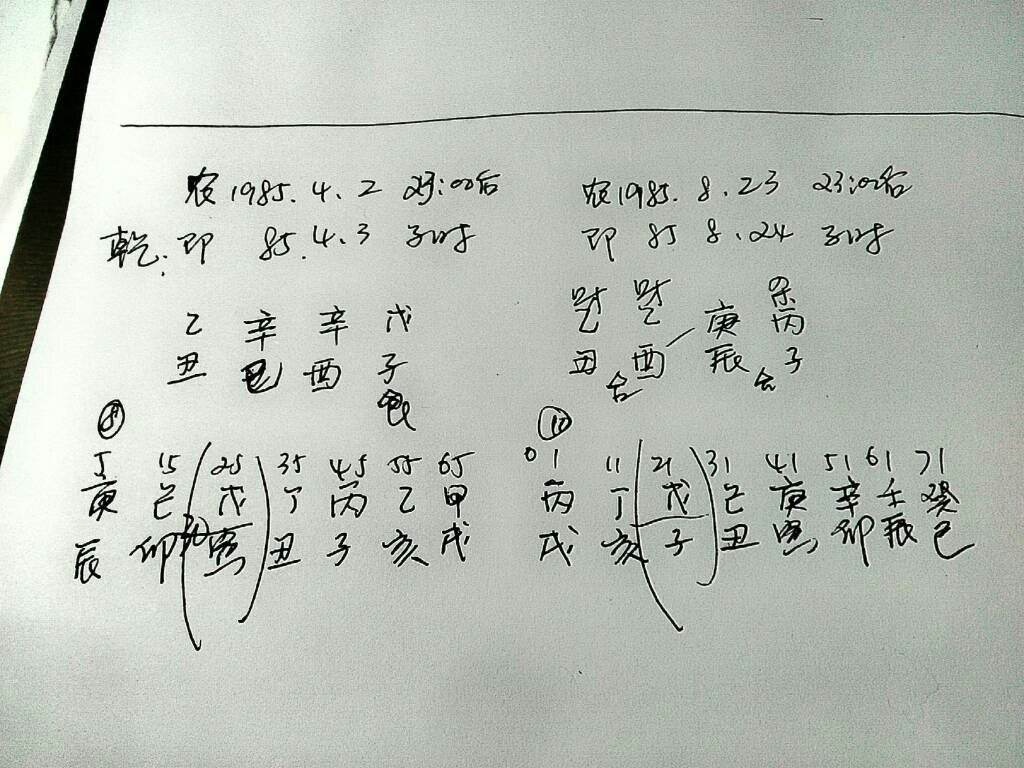 农1985.4.2 23:00后 农1985.8.23 23:00后
乾: 即 85.4.3 子时 即 85 8.24 子时
财 财 杀
乙 辛 辛 戊 乙 乙 庚 丙
丑 巳 酉 子 丑 酉 辰 子
合 合
5 15 25 35 45 55 65 01 11 21 31 41 51 61 71
庚 己 戊 丁 丙 乙 甲 丙 丁 戊 己 庚 辛 壬 癸
辰 卯 寅 丑 子 亥 戌 戌 亥 子 丑 寅 卯 辰 巳